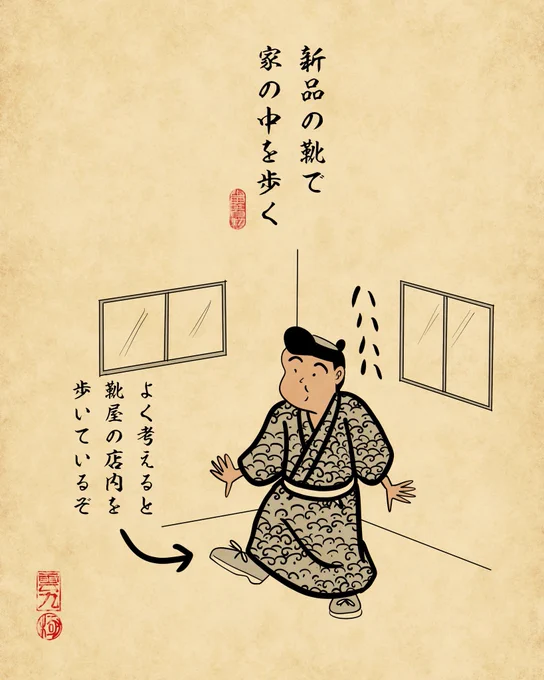 新品の靴で
家の中を歩く
いいいい
よく考えると
靴屋の店内を
歩いているぞ